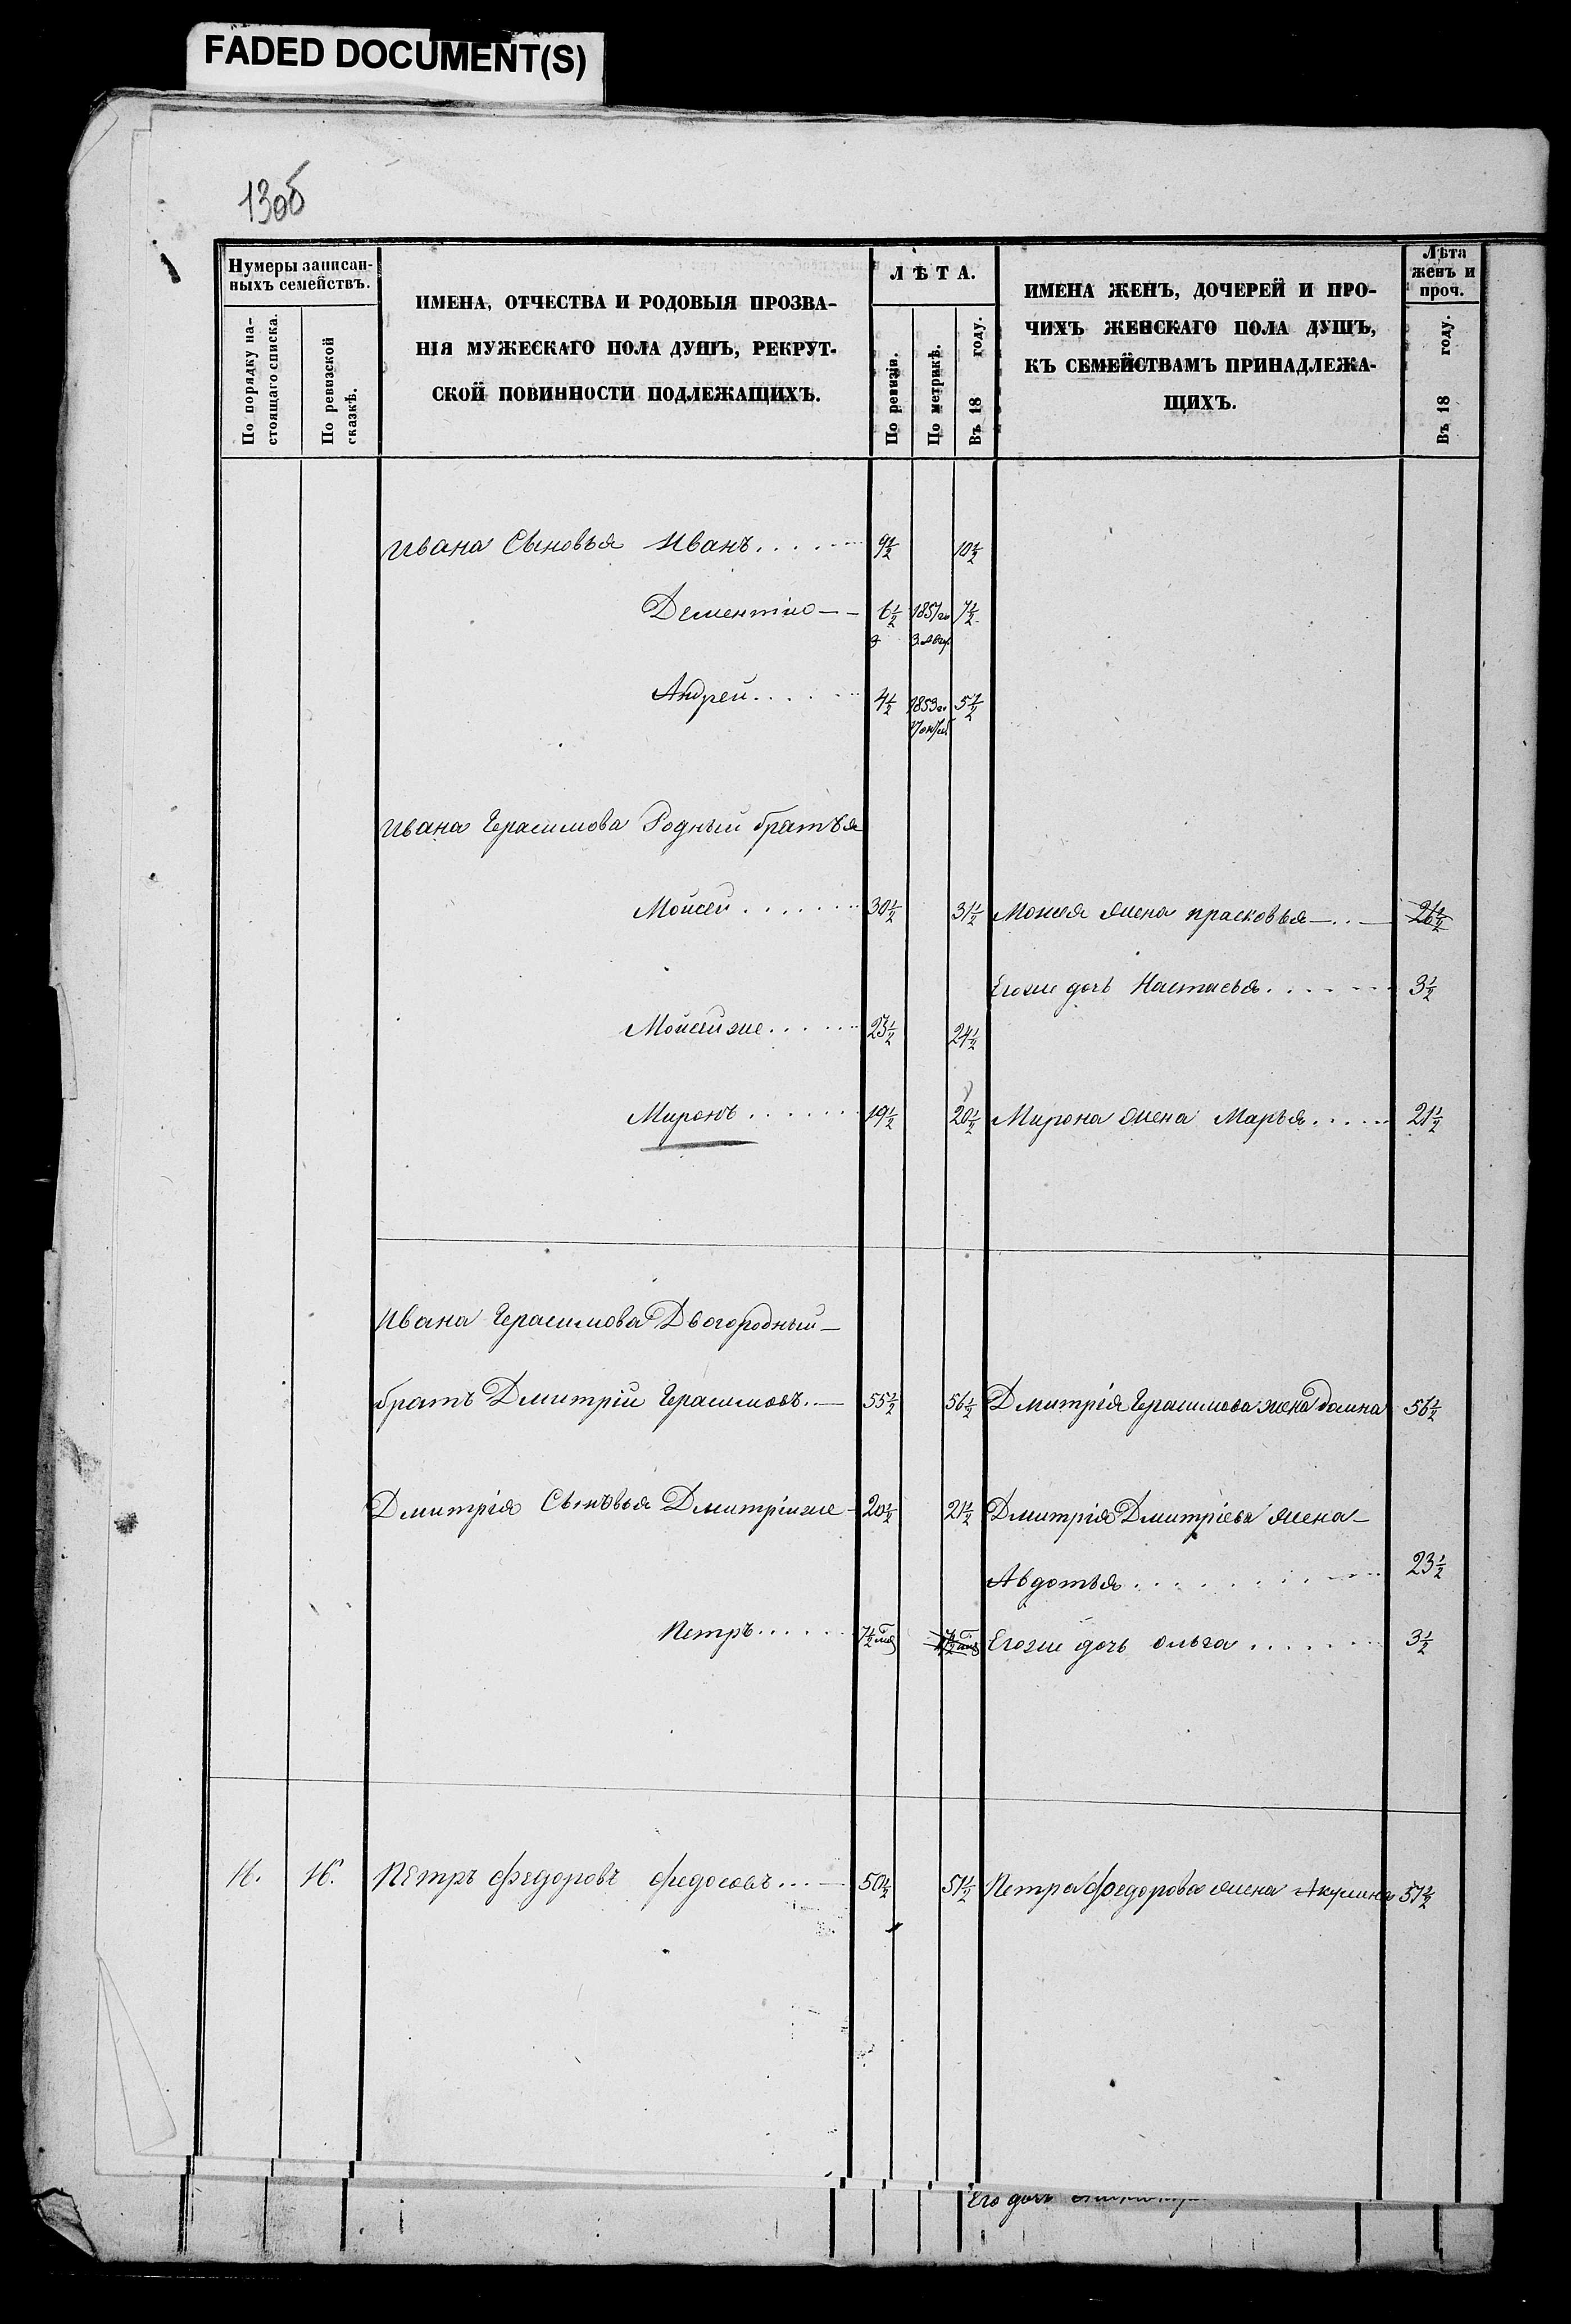 FADED DOCUMENT(S)
13об
Нумеры записан-
ныхъ семействъ.
По порядку на-
стоящаго списка.
По ревизской
сказкѣ.
ИМЕНА, ОТЧЕСТВА И РОДОВЫЯ ПРОЗВА-
НІЯ МУЖЕСКАГО ПОЛА ДУШЪ, РЕКРУТ-
СКОЙ ПОВИННОСТИ ПОДЛЕЖАЩИХЪ.
ЛѢТА.
По ревизіи.
По метрикѣ.
Въ 18 году.
ИМЕНА ЖЕНЪ, ДОЧЕРЕЙ И ПРО-
ЧИХЪ ЖЕНСКАГО ПОЛА ДУШЪ,
КЪ СЕМЕЙСТВАМЪ ПРИНАДЛЕЖА-
ЩИХЪ.
Лѣта
женъ и
проч.
Въ 18 году.
Ивана Сыновья Иванъ 9½ 10½
Дементій 6½ 1851 го 7½
Андрей 4½ 1853 го 5½
Ивана Герасимова Родныи братья
Мойсей 30½ 31½ Моисея жена прасковья 26½
Егоже дочь Настасья 3½
Мойсейже 23½ 24½
Миронъ 19½ 20½ Мирона жена Марья 21½
Ивана Герасимова Двогородный
братъ Дмитрій Герасимовъ 55½ 56½ Дмитрія Герасимова жена домна 56½
Дмитрія Сыновья Дмитрійже 20½ 21½ Дмитрія Дмитріева жена
Авдотья 23½
Петръ 7½ Егоже дочь ольга 3½
16. 16. Петръ федоровъ федосовъ 50½ 51½ Петра федорова жена Акулина 51½
Его дочь